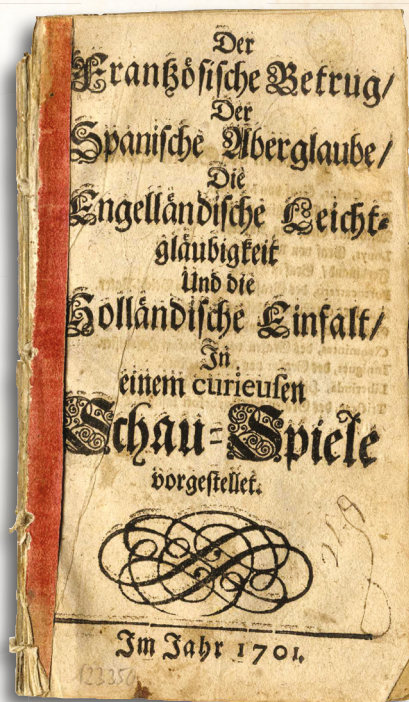 Der
Frantzösische Betrug/
Der
Spanische Aberglaube/
Die
Engelländische Leicht-
gläubigkeit
Und die
Holländische Einfalt/
In
einem curieusen
Schau-Spiele
vorgestellet.
Im Jahr 1701.